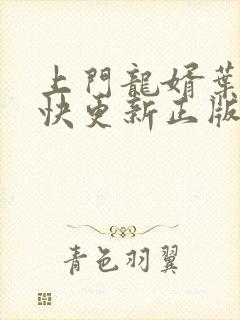 上門龍婿葉
快更新正版
青色羽翼